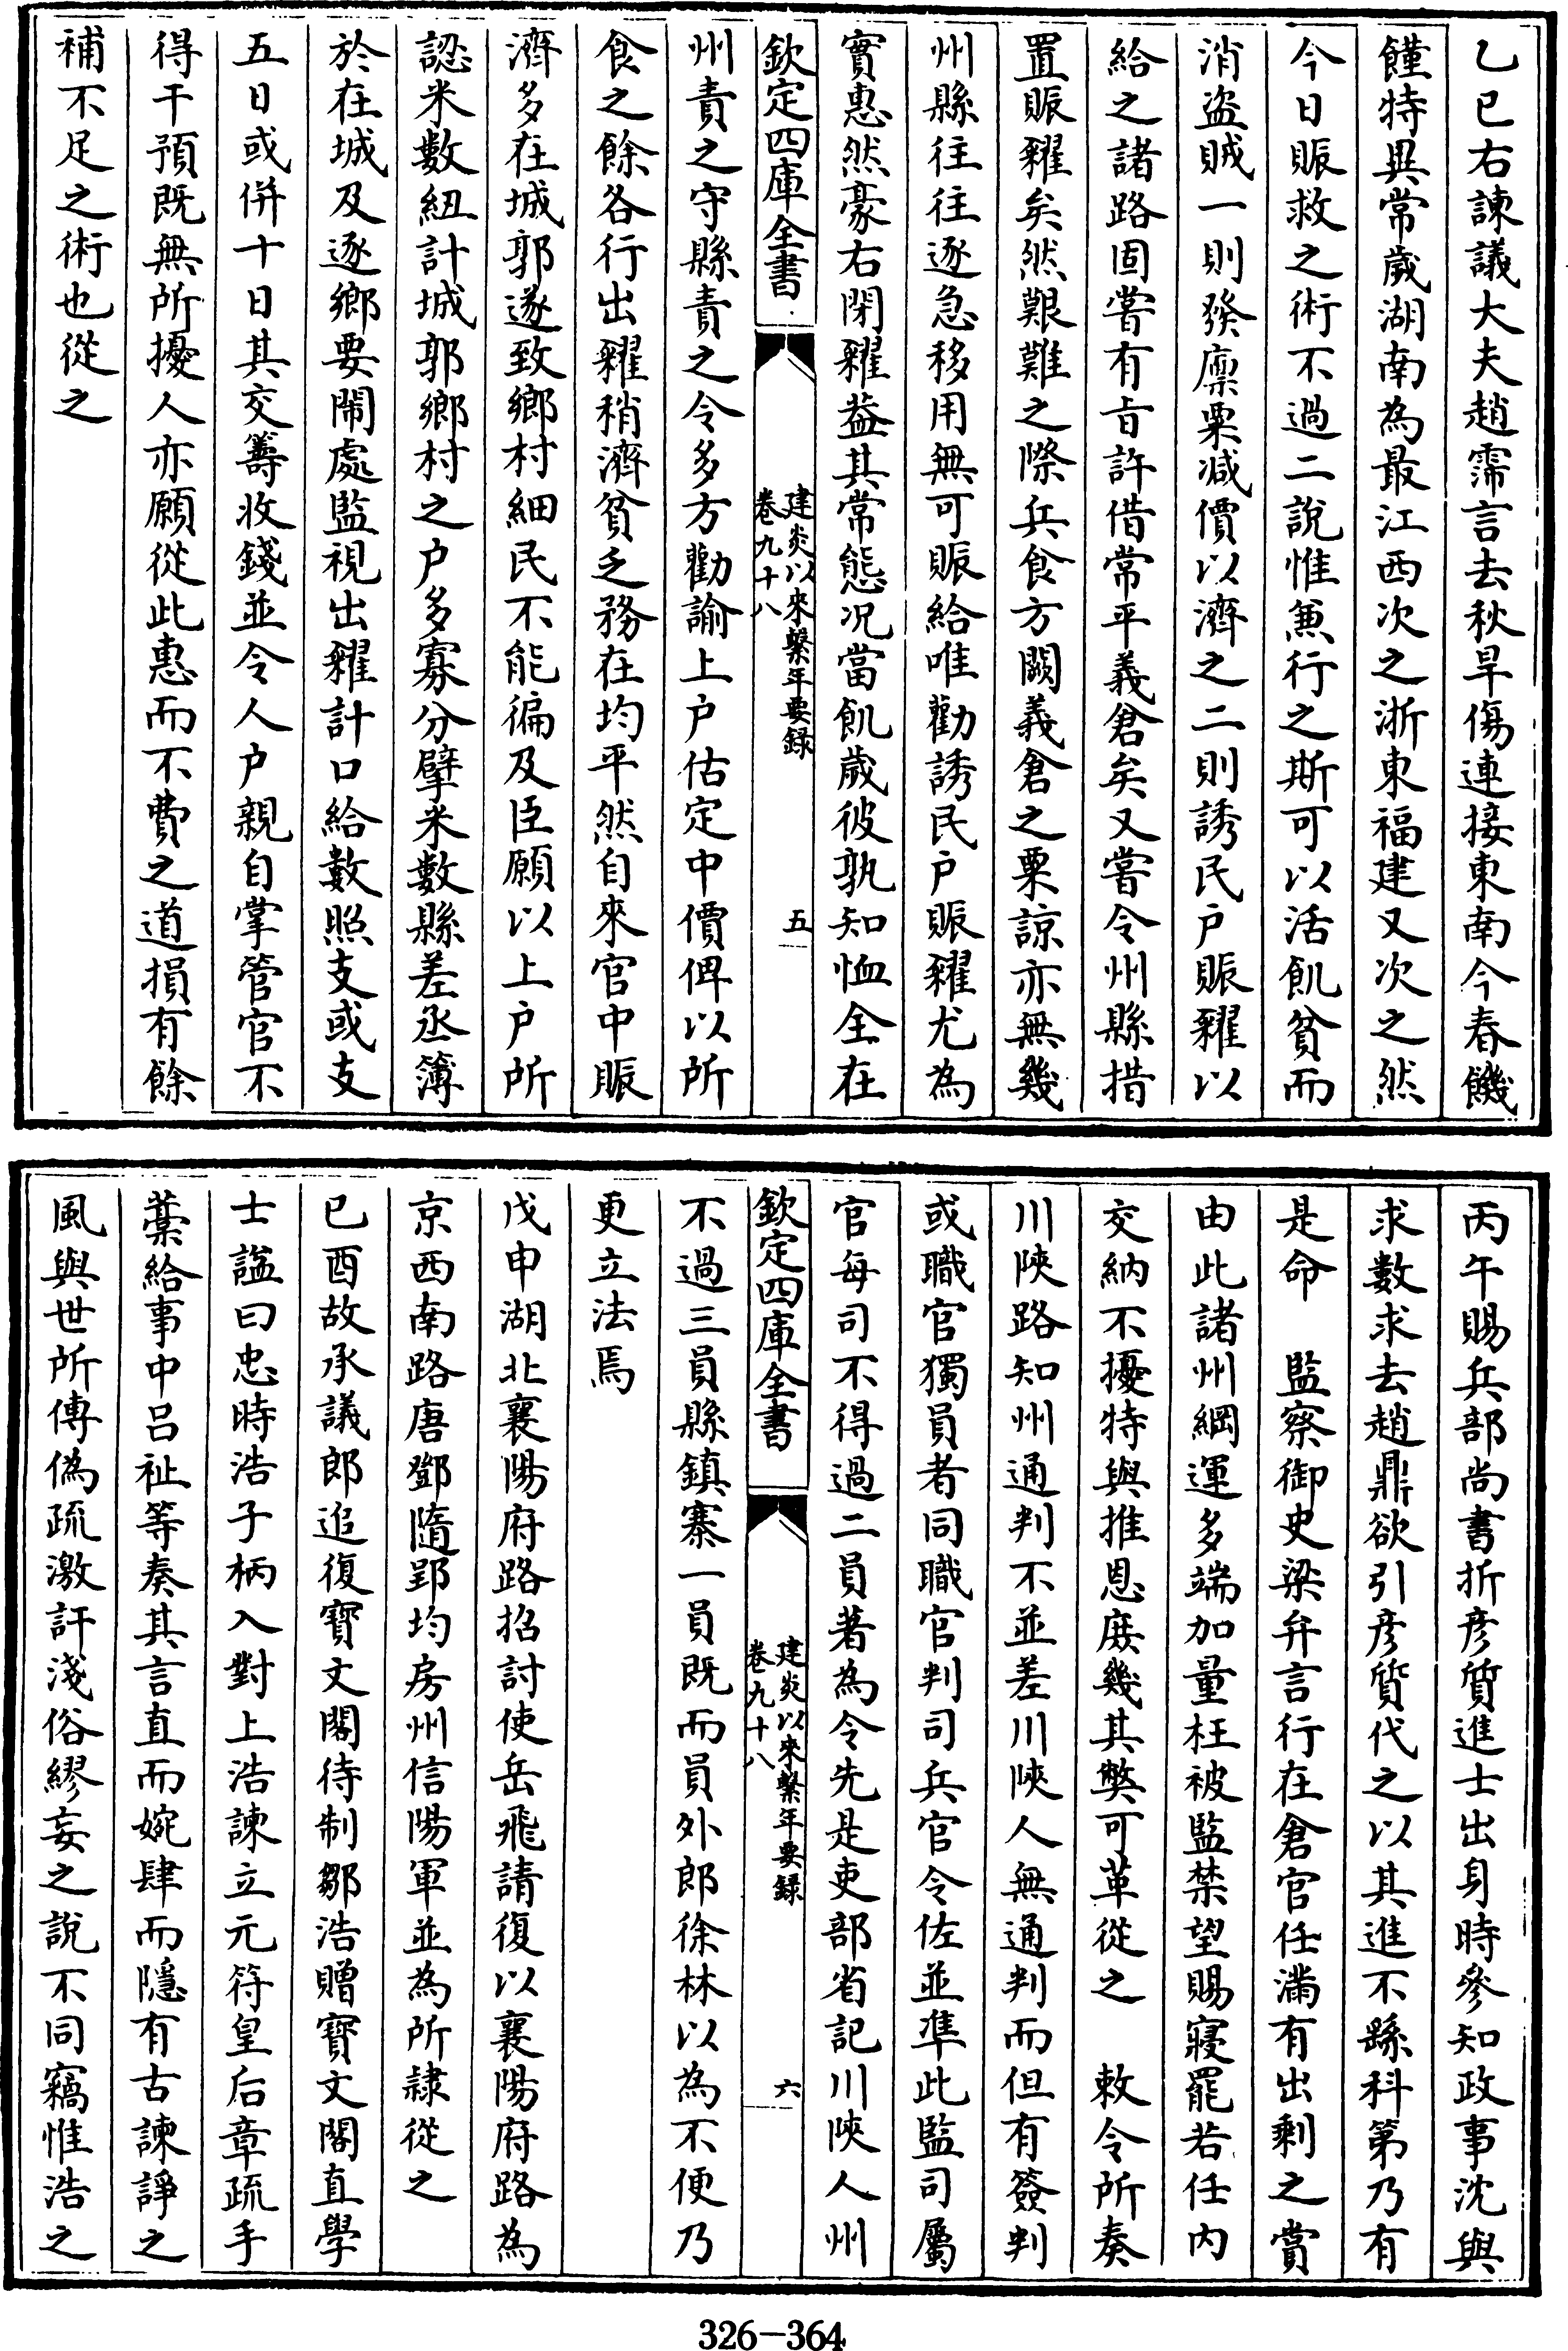 乙巳右諫議大夫趙霈言去秋旱傷連接東南今春饑
饉特異常歲湖南為最江西次之浙東福建又次之然
今日賑救之術不過二說惟兼行之斯可以活飢貧而
消盜賊一則發廩粟减價以濟之二則誘民户賑糶以
給之諸路固嘗有㫖許借常平義倉矣又嘗令州縣措
置賑糶矣然艱難之際兵食方闕義倉之粟諒亦無幾
州縣往往逐急移用無可賑給唯勸誘民户賑糶尤為
實惠然豪右閉糶益其常態况當飢歲彼孰知恤全在
欽定四庫全書
建炎以來繫年要録
卷九十八
五
州責之守縣責之令多方勸諭上户估定中價俾以所
食之餘各行出糶稍濟貧乏務在均平然自來官中賑
濟多在城郭遂致鄉村細民不能徧及臣願以上户所
認米數紐計城郭鄉村之户多寡分擘米數縣差丞簿
於在城及逐鄉要閙處監視出糶計口給數照支或支
五日或併十日其交籌收錢並令人户親自掌管官不
得干預既無所擾人亦願從此惠而不費之道損有餘
補不足之術也從之
丙午賜兵部尚書折彦質進士出身時參知政事沈與
求數求去趙鼎欲引彦質代之以其進不繇科第乃有
是命　監察御史梁弁言行在倉官任滿有出剩之賞
由此諸州綱運多端加量枉被監禁望賜寢罷若任内
交納不擾特與推恩庶幾其弊可革從之　敕令所奏
川陜路知州通判不並差川陜人無通判而但有簽判
或職官獨員者同職官判司兵官令佐並凖此監司屬
官每司不得過二員著為令先是吏部省記川陜人州
欽定四庫全書
建炎以來繫年要録
卷九十八
六
不過三員縣鎮寨一員既而員外郎徐林以為不便乃
更立法焉
戊申湖北襄陽府路招討使岳飛請復以襄陽府路為
京西南路唐鄧隨郢均房州信陽軍並為所隷從之
已酉故承議郎追復寶文閣待制鄒浩贈寶文閣直學
士諡曰忠時浩子柄入對上浩諫立元符皇后章疏手
藁給事中吕祉等奏其言直而婉肆而隱有古諫諍之
風與世所傳偽疏激訐淺俗繆妄之說不同竊惟浩之
326-364